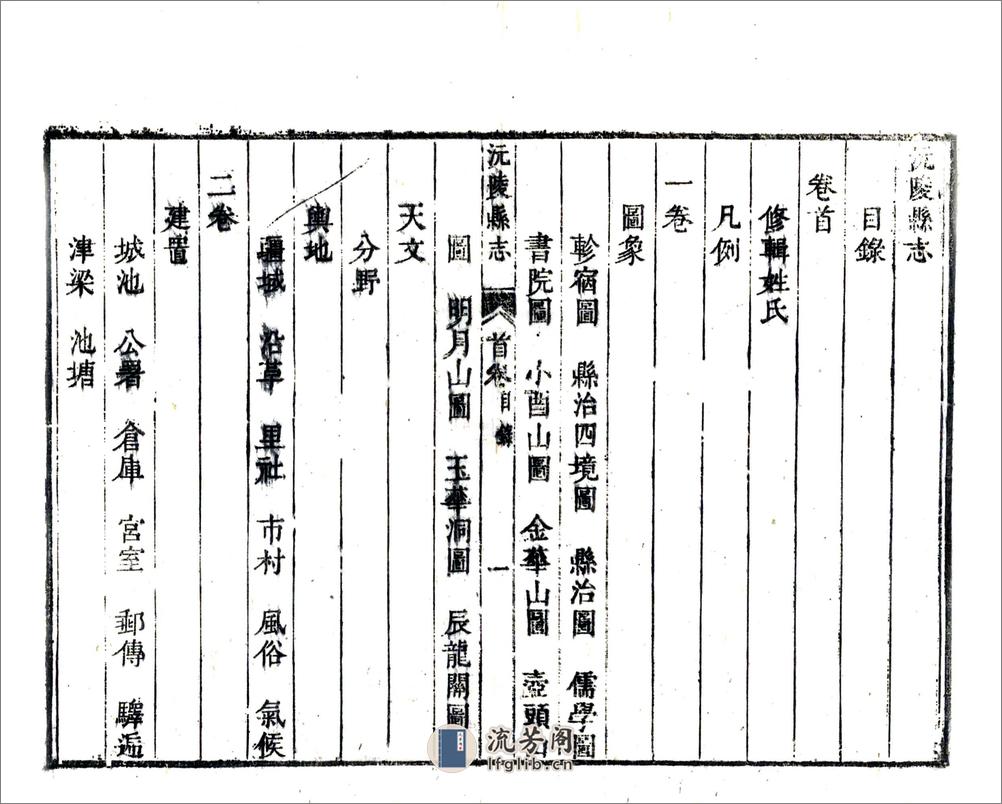 沅陵縣志
目錄
卷首
修輯姓氏
凡例
一卷
圖象
軫宿圖 縣治四境圖 縣治圖 儒學圖
書院圖 小酉山圖 金華山圖 壺頭山
沅陵縣志 首卷目錄 一
圖 明月山圖 玉華洞圖 辰龍關圖
天文
分野
輿地
疆域 沿革 里社 市村 風俗 氣候
二卷
建置
城池 公署 倉庫 宮室 郵傳 驛逓
津梁 池塘
流芳阁
lfglib.cn